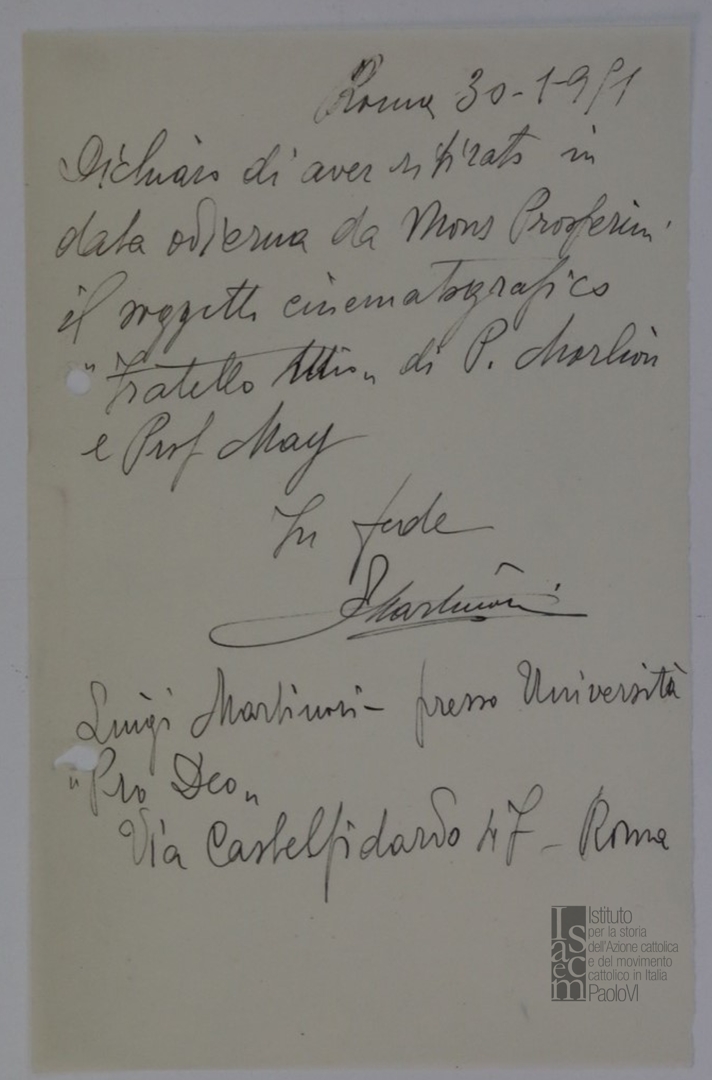 Roma 30-1-951
Dichiaro di aver ritirato in
data odierna da Mons Prosperini
il soggetto cinematografico
"Fratello" di P. Morlion
e Prof May
In fede
LMartinori
Luigi Martinori - presso Università
"Pro Deo"
Via Castelfidardo 47 - Roma
Isacem
Istituto
per la storia
dell'Azione cattolica
e del movimento
cattolico in Italia
PaoloVI